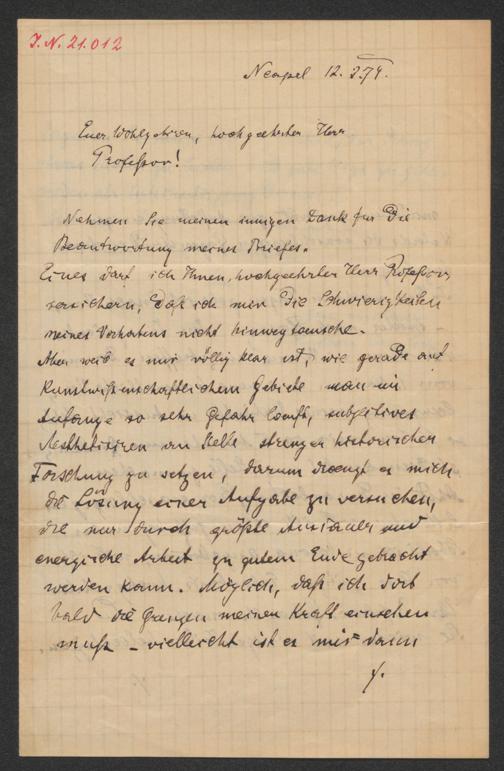 J. N. 21.012
Neapel 12. 
Euer Wohlgeboren, hochgeehrter Herr
Professor!
Nehmen Sie meinen innigen Dank für die
Beantwortung meines Briefes.
Eines darf ich Ihnen, hochgeehrter Herr Professor,
versichern, daß ich mir die Schwierigkeiten
meines Vorhabens nicht hinwegtäusche.
Aber weil es mir völlig klar ist, wie gerade auf
kunstwissenschaftlichem Gebiete man im
Anfange so sehr Gefahr läuft, subjektives
Aesthetisiren an Stelle strenger historischer
Forschung zu setzen, darum draengt es mich
die Lösung einer Aufgabe zu versuchen,
die nur durch größte Ausdauer und
energische Arbeit zu gutem Ende gebracht
werden kann. Möglich, daß ich dort
bald die Grenzen meiner Kraft einsehen
muß – vielleicht ist es mir dann